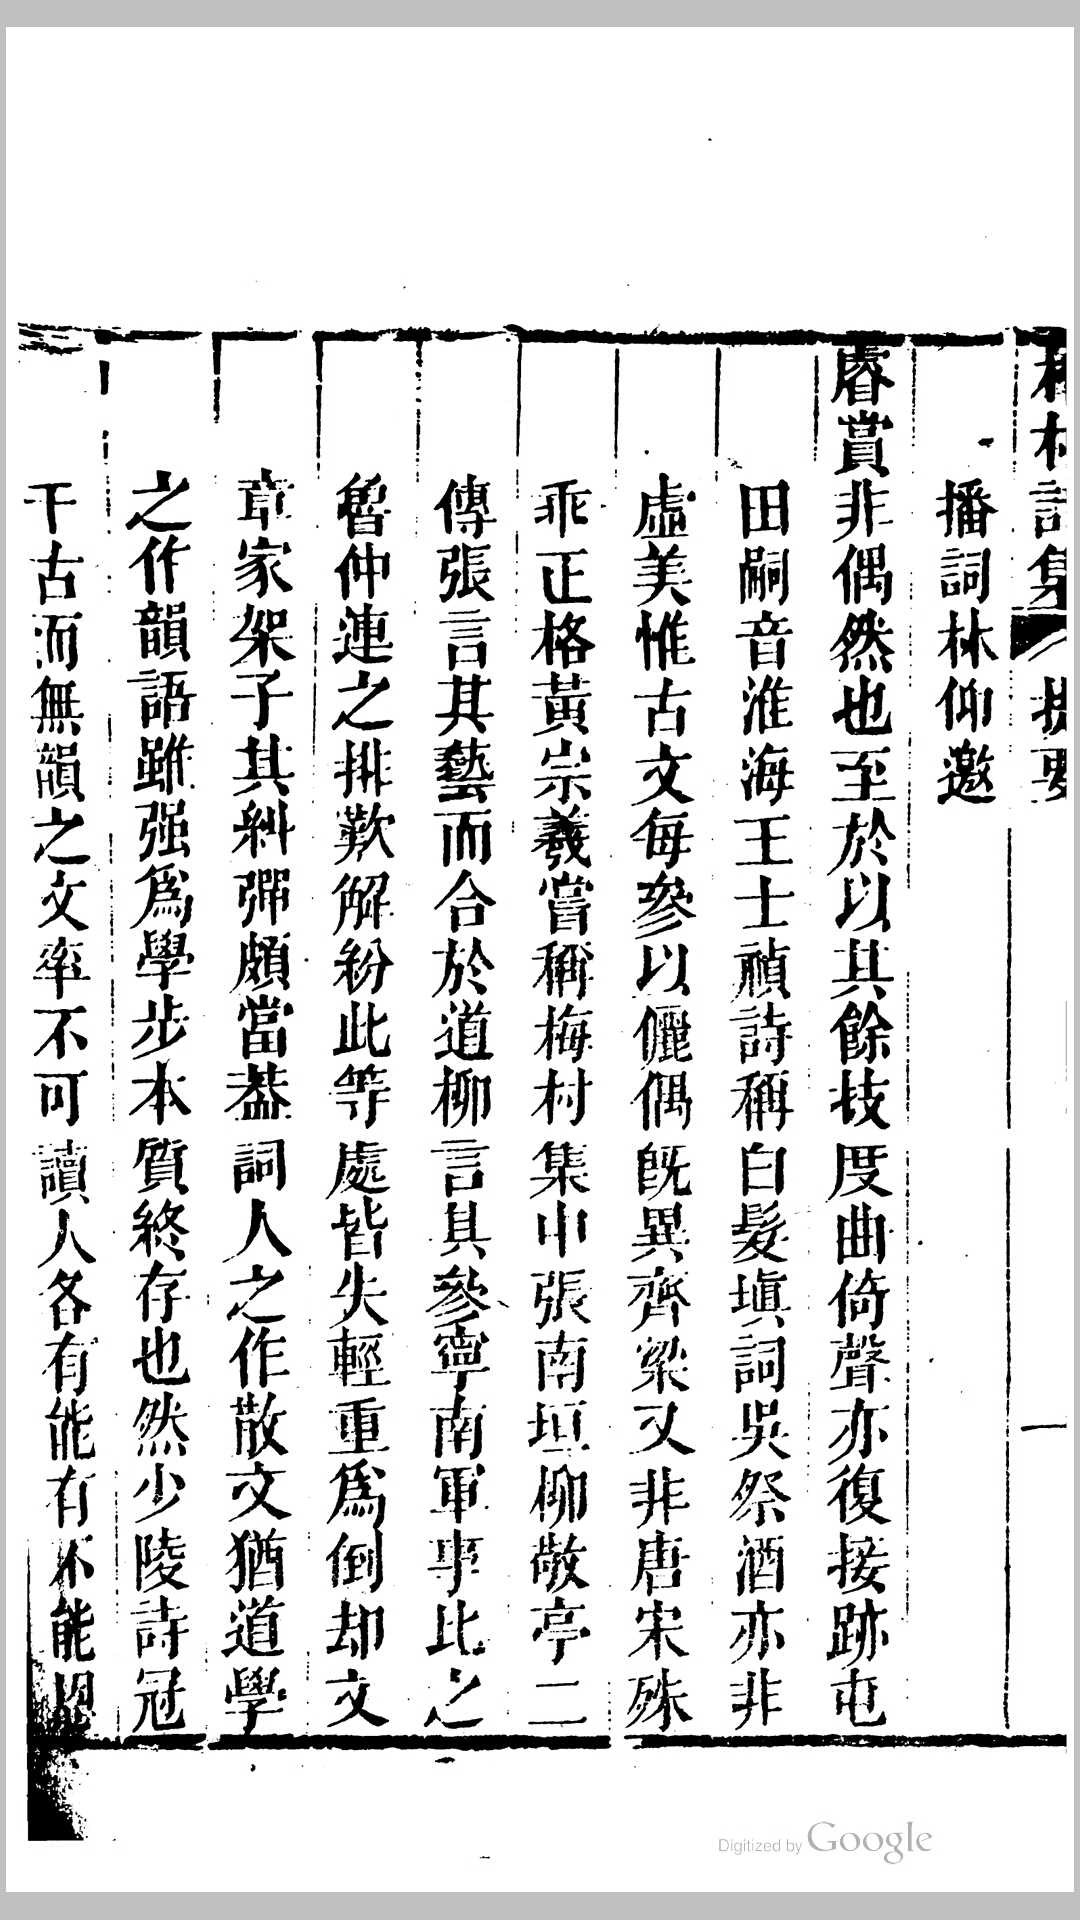 梅村詩集 提要 一
播詞林仰邀
睿賞非偶然也至於以其餘技度曲倚聲亦復接跡屯
田嗣音淮海王士禎詩稱白髮塡詞吳祭酒亦非
虛美惟古文每參以儷偶旣異齊梁又非唐宋殊
乖正格黃宗羲嘗稱梅村集中張南垣柳敬亭二
傳張言其藝而合於道柳言其參寧南軍事比之
魯仲連之排難解紛此等處皆失輕重爲倒却文
章家架子其糾彈頗當葢詞人之作散文猶道學
之作韻語雖强爲學步本質終存也然少陵詩冠
千古而無韻之文率不可讀人各有能有不能
Digitized by Google